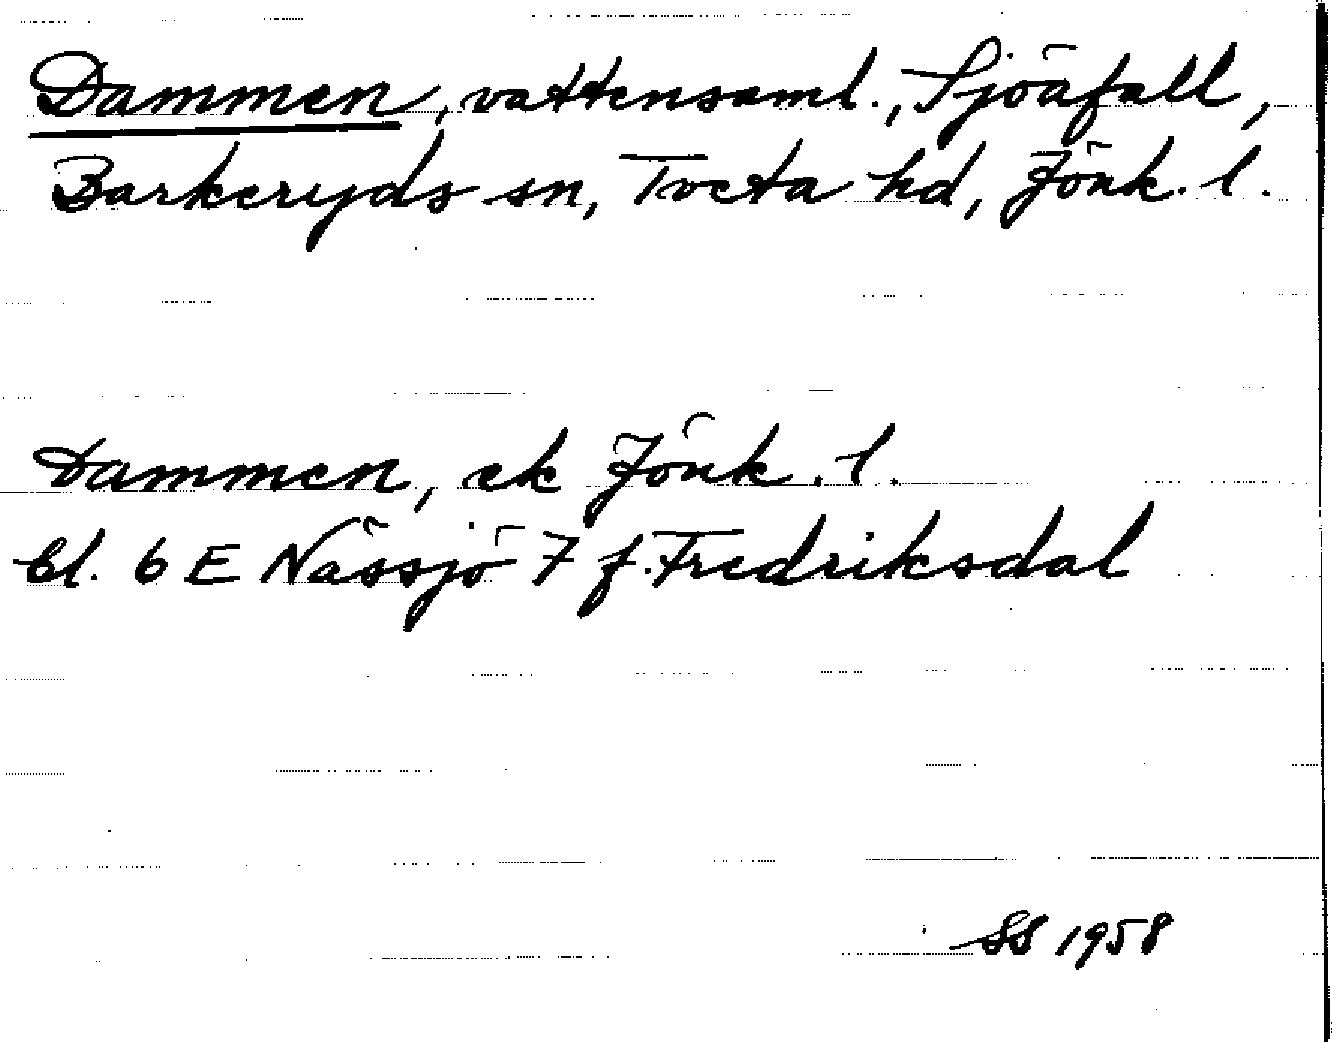 Dammen, vattensaml., Sjöafall,
Barkeryds sn, Tveta hd, Jönk. l.
Dammen, ek Jönk. l.
bl. 6 E Nässjö 7 f. Fredriksdal
SS 1958